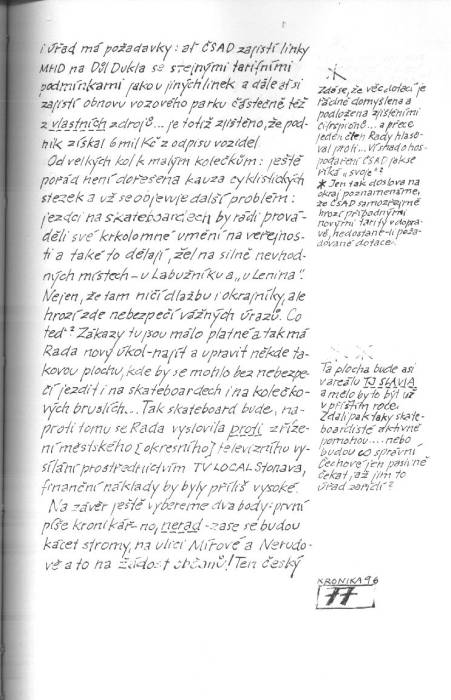 i úřad má požadavky: ať ČSAD zajistí linky
MHD na Důl Dukla se stejnými tarifními
podmínkami jako u jiných linek a dále ať si
zajistí obnovu vozového parku částečně též
z vlastních zdrojů... je totiž zjištěno, že pod-
nik získal 6 mil Kč z odpisu vozidel.
Od velkých kol k malým kolečkům: ještě
pořád není dořešena kauza cyklistických
stezek a už se objevuje další problém:
jezdci na skateboardech by rádi prová-
děli své krkolomné umění na veřejnos-
ti a také to dělají, že! na silně nevhod-
ných místech - u Labužníka a „u Lenina".
Nejen, že tam ničí dlažbu i okrajníky, ale
hrozí zde nebezpečí vážných úrazů. Co
teď? Zákazy tu jsou málo platné a tak má
Rada nový úkol - najít a upravit někde ta-
kovou plochu, kde by se mohlo bez nebezpe-
čí jezdit i na skateboardech i na kolečko-
vých bruslích... Tak skateboard bude, na-
proti tomu se Rada vyslovila proti zříze-
ní městského [okresního] televizního vy-
sílání prostřednictvím TV LOCAL Stonava,
finanční náklady by byly příliš vysoké.
Na závěr ještě vybereme dva body: první
píše kronikář - no, nerad - zase se budou
kácet stromy, na ulici Mírové a Nerudo-
vě a to na žádost občanů! Ten český
Zdá se, že věc dotací je
řádně domyšlena a
podložena zjištěními
či fropinio... a přece
jeden člen Rady hlaso-
val proti... Ví snad o hos-
podaření ČSAD jak se
říká „svoje"?
* Jen tak doslova na
okraj poznamenáme,
že ČSAD samozřejmě
hrozí případnými
novými tarify v dopra-
vě, nedostane-li poža-
dované dotace.
Ta plocha bude asi
v areálu TJ SLAVIA
a mělo by to být už
v příštím roce.
Zdali pak taky skate-
boardisté aktivně
pomohou.... nebo
budou co správní
Čechové jen pasivně
čekat, až jim to
úřad zařídí?
KRONIKA 96
77